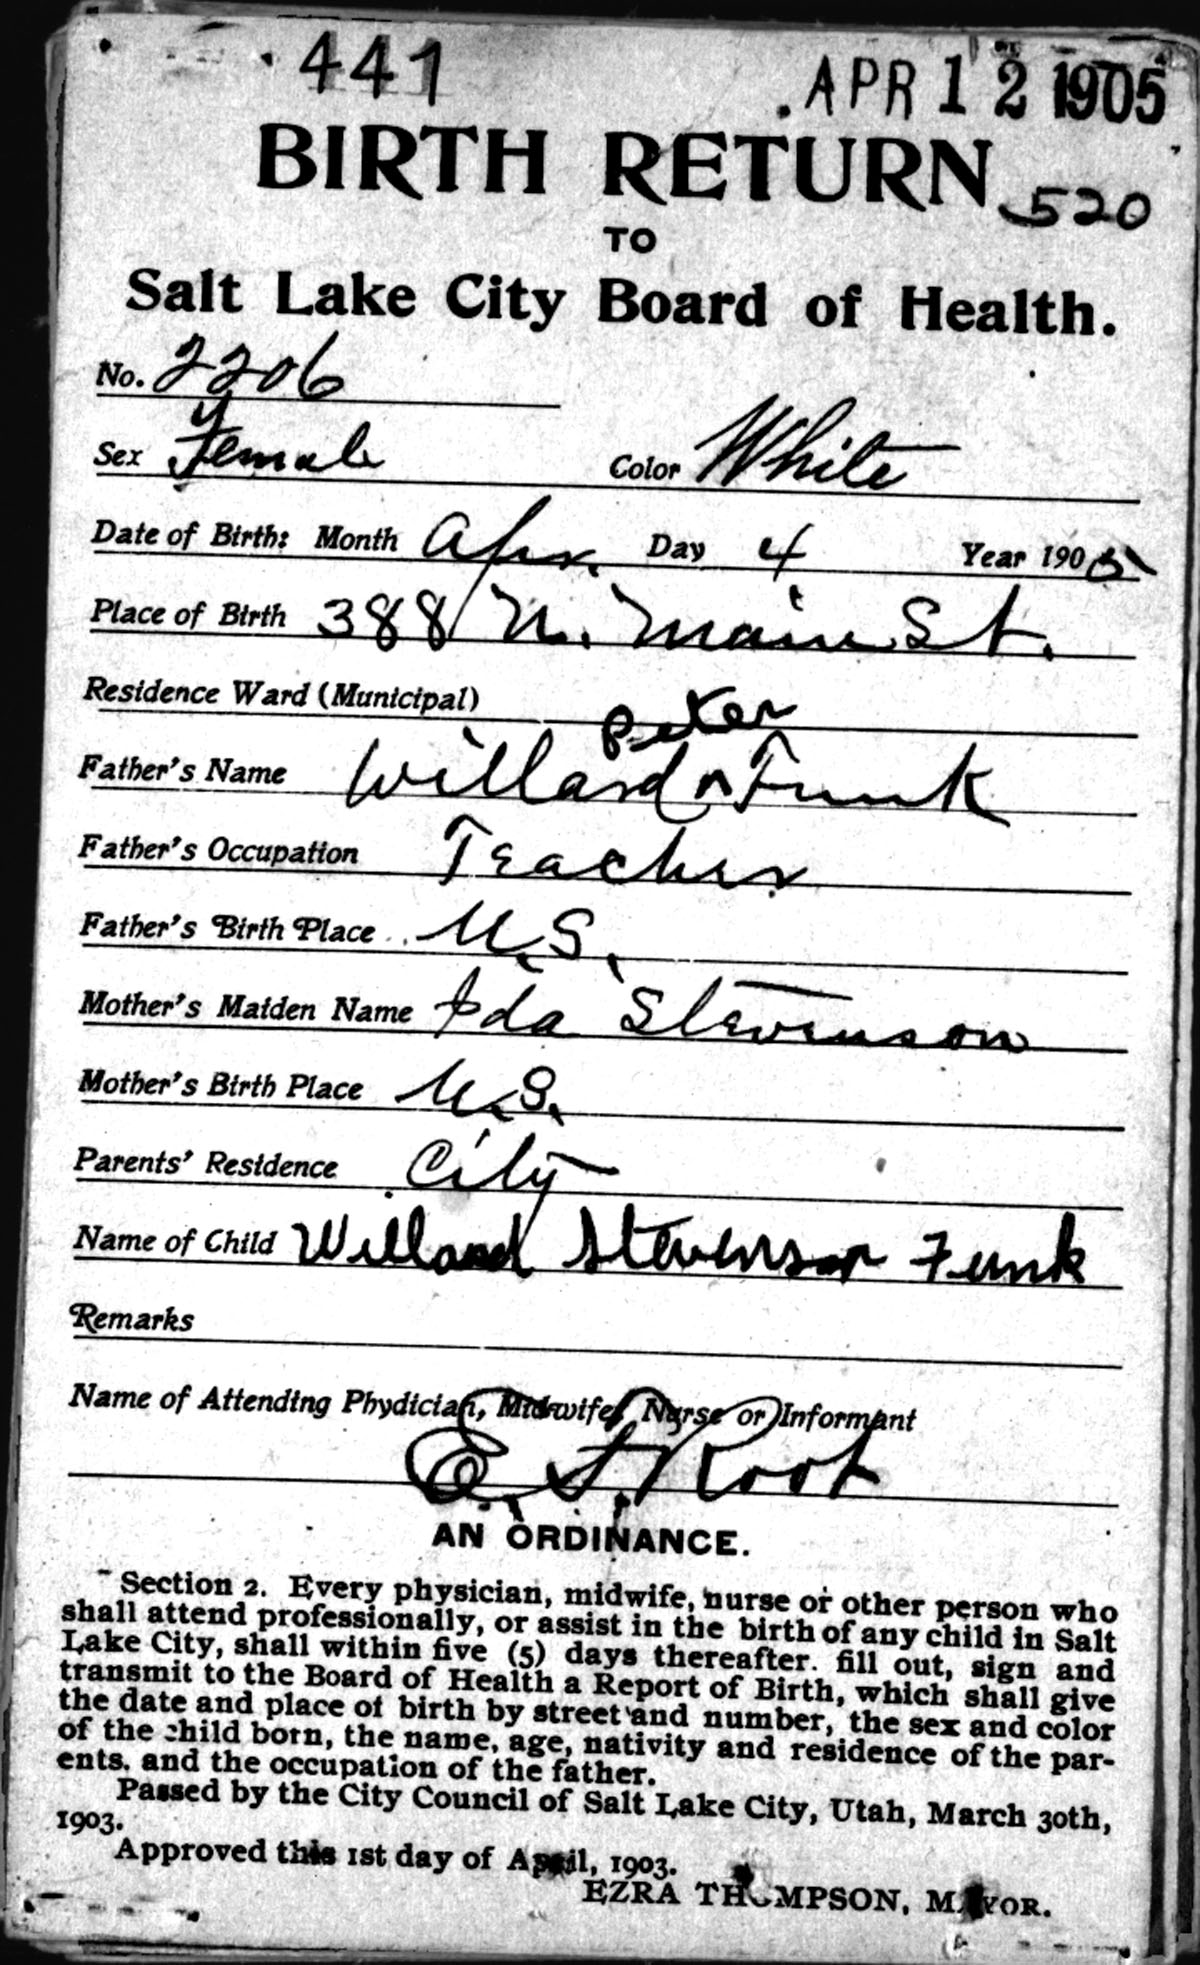 441
APR 12 1905
BIRTH RETURN
520
TO
Salt Lake City Board of Health.
No. 2206
Sex Female Color White
Date of Birth: Month Apr. Day 4 Year 1905
Place of Birth 388 N. Main St.
Residence Ward (Municipal)
Peter
Father's Name Willard Funk
Father's Occupation Teacher
Father's Birth Place U.S.
Mother's Maiden Name Ida Stevenson
Mother's Birth Place U.S.
Parents' Residence City
Name of Child Willard Stevenson Funk
Remarks
Name of Attending Phydician, Midwife, Nurse or Informant
E. S. Root
AN ORDINANCE.
Section 2. Every physician, midwife, nurse or other person who
shall attend professionally, or assist in the birth of any child in Salt
Lake City, shall within five (5) days thereafter. fill out, sign and
transmit to the Board of Health a Report of Birth, which shall give
the date and place of birth by street and number, the sex and color
of the child born, the name, age, nativity and residence of the par-
ents. and the occupation of the father.
Passed by the City Council of Salt Lake City, Utah, March 30th,
1903.
Approved this 1st day of April, 1903.
EZRA THOMPSON, MAYOR.